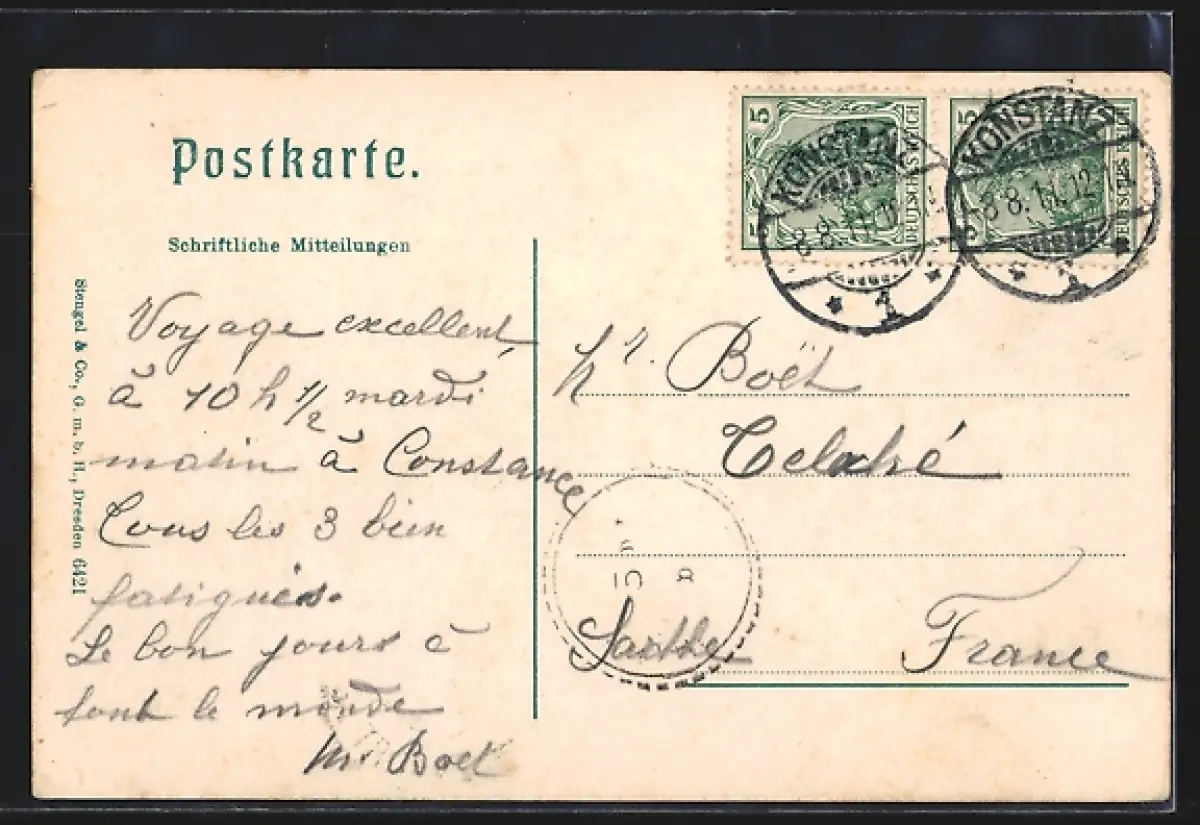 Postkarte.
Schriftliche Mitteilungen
Stengel & Co., G. m. b. H., Dresden 6421
Voyage excellent
à 10 h 1/2 mardi
matin à Constance
Tous les 3 bien
fatigués.
Le bon jours à
tout le monde
Mr. Boët
5 5 DEUTSCHES REICH
5 DEUTSCHES REICH
KONSTANZ
8.8.11.
1
KONSTANZ
8.8.11.12
1
Mr. Boët
Teloché
Sarthe France